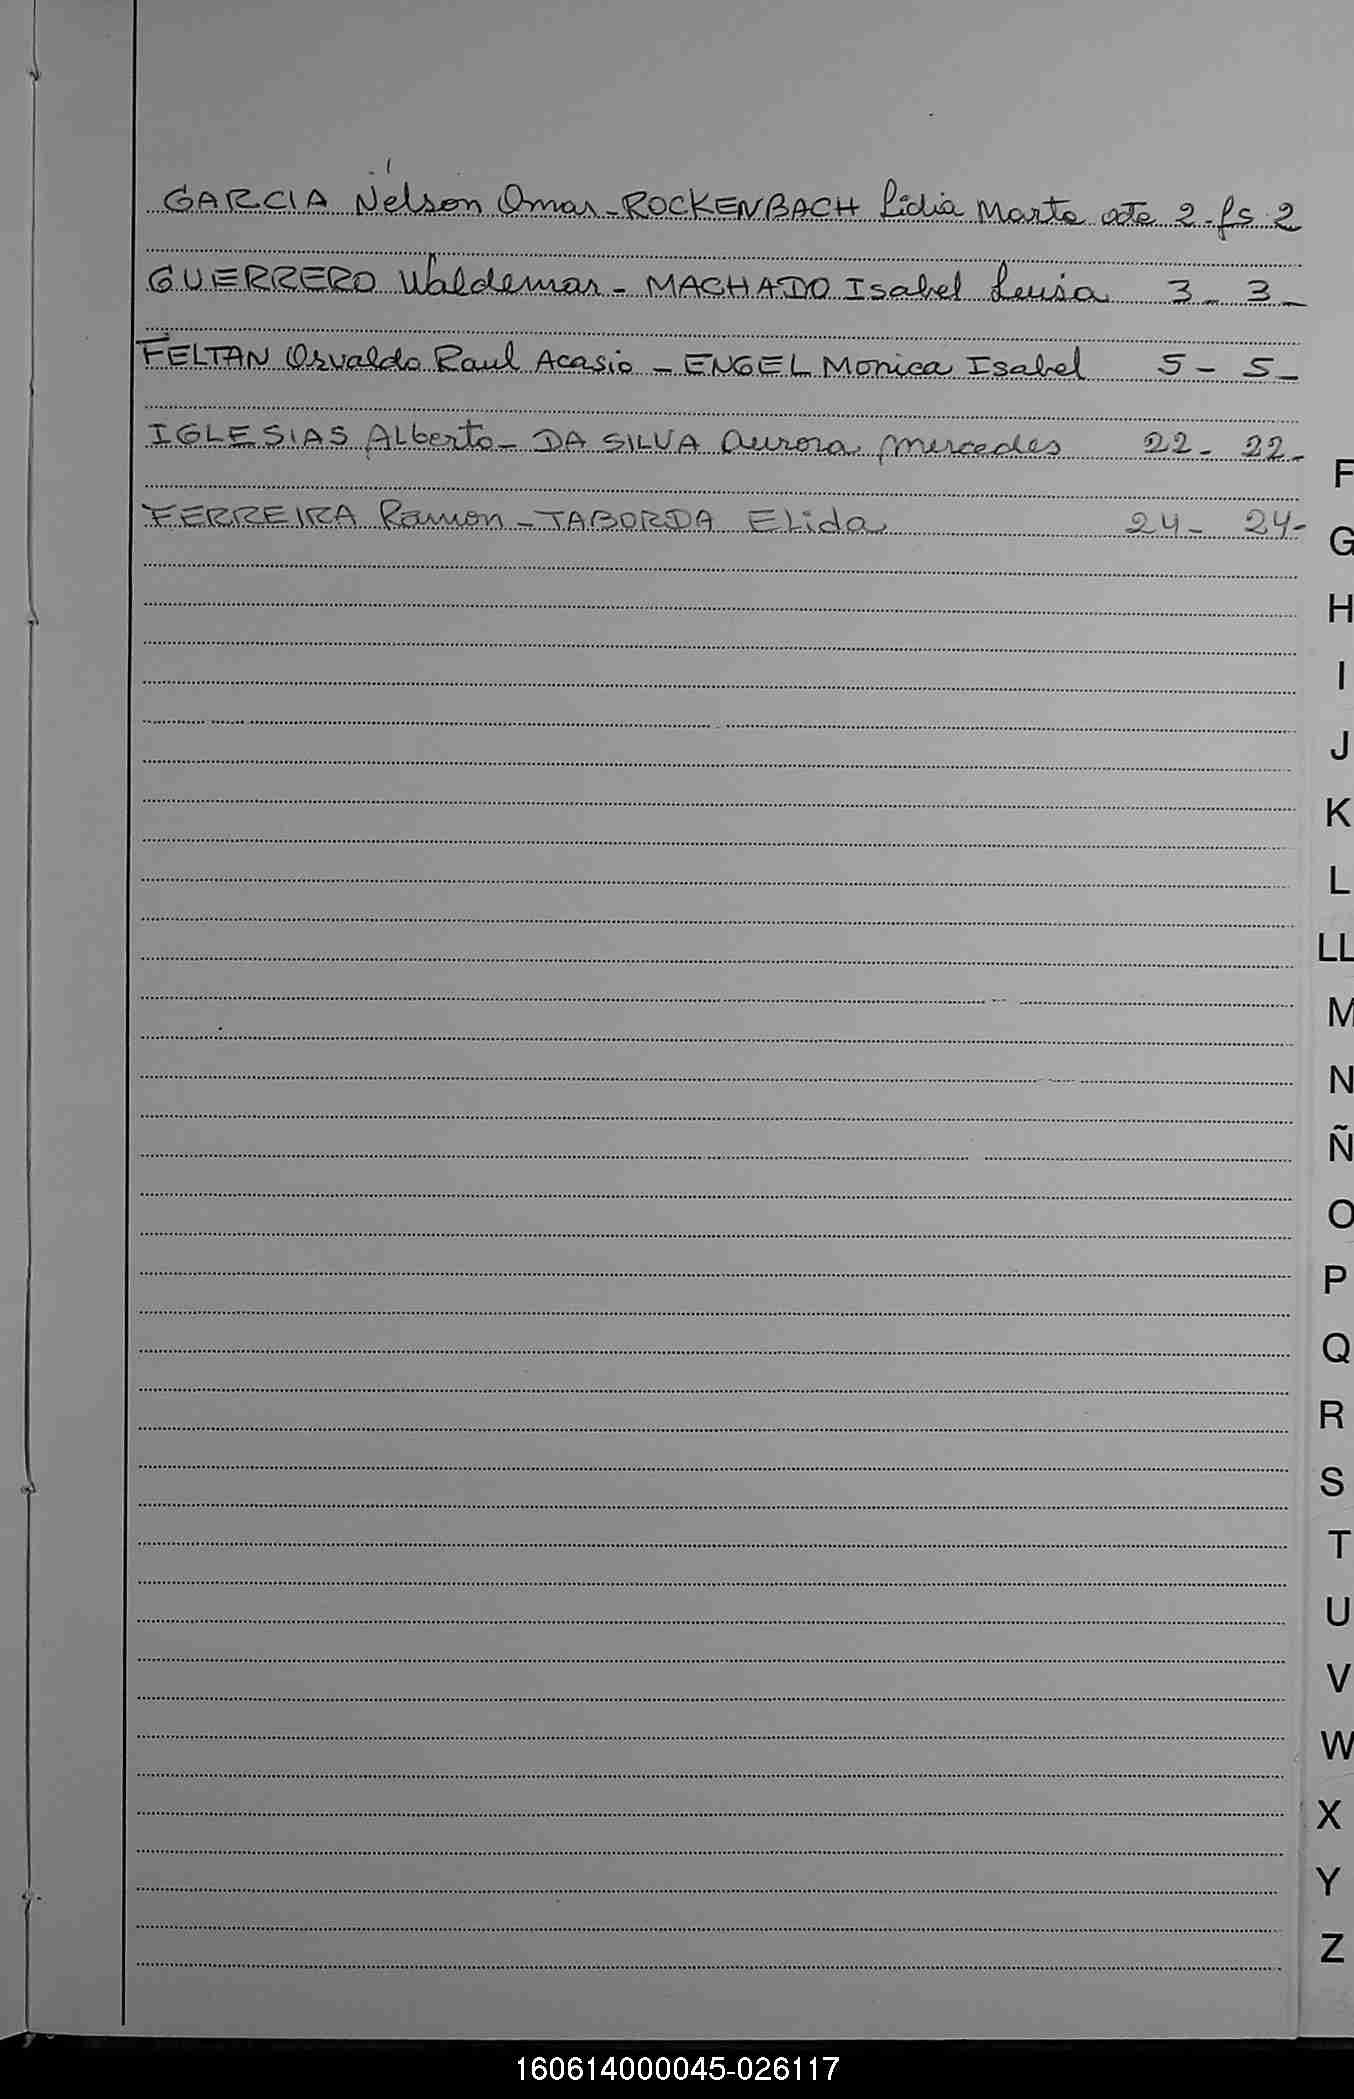 GARCIA Nelson Omar - ROCKENBACH Lidia Marta ata 2 - fs 2
GUERRERO Waldemar - MACHADO Isabel Luisa 3 - 3 -
FELTAN Osvaldo Raul Acasio - ENGEL Monica Isabel 5 - 5 -
IGLESIAS Alberto - DA SILVA Aurora Mercedes 22 - 22 -
FERREIRA Ramon - TABORDA Elida 24 - 24 -
F
G
H
I
J
K
L
LL
M
N
Ñ
O
P
Q
R
S
T
U
V
W
X
Y
Z
160614000045-026117